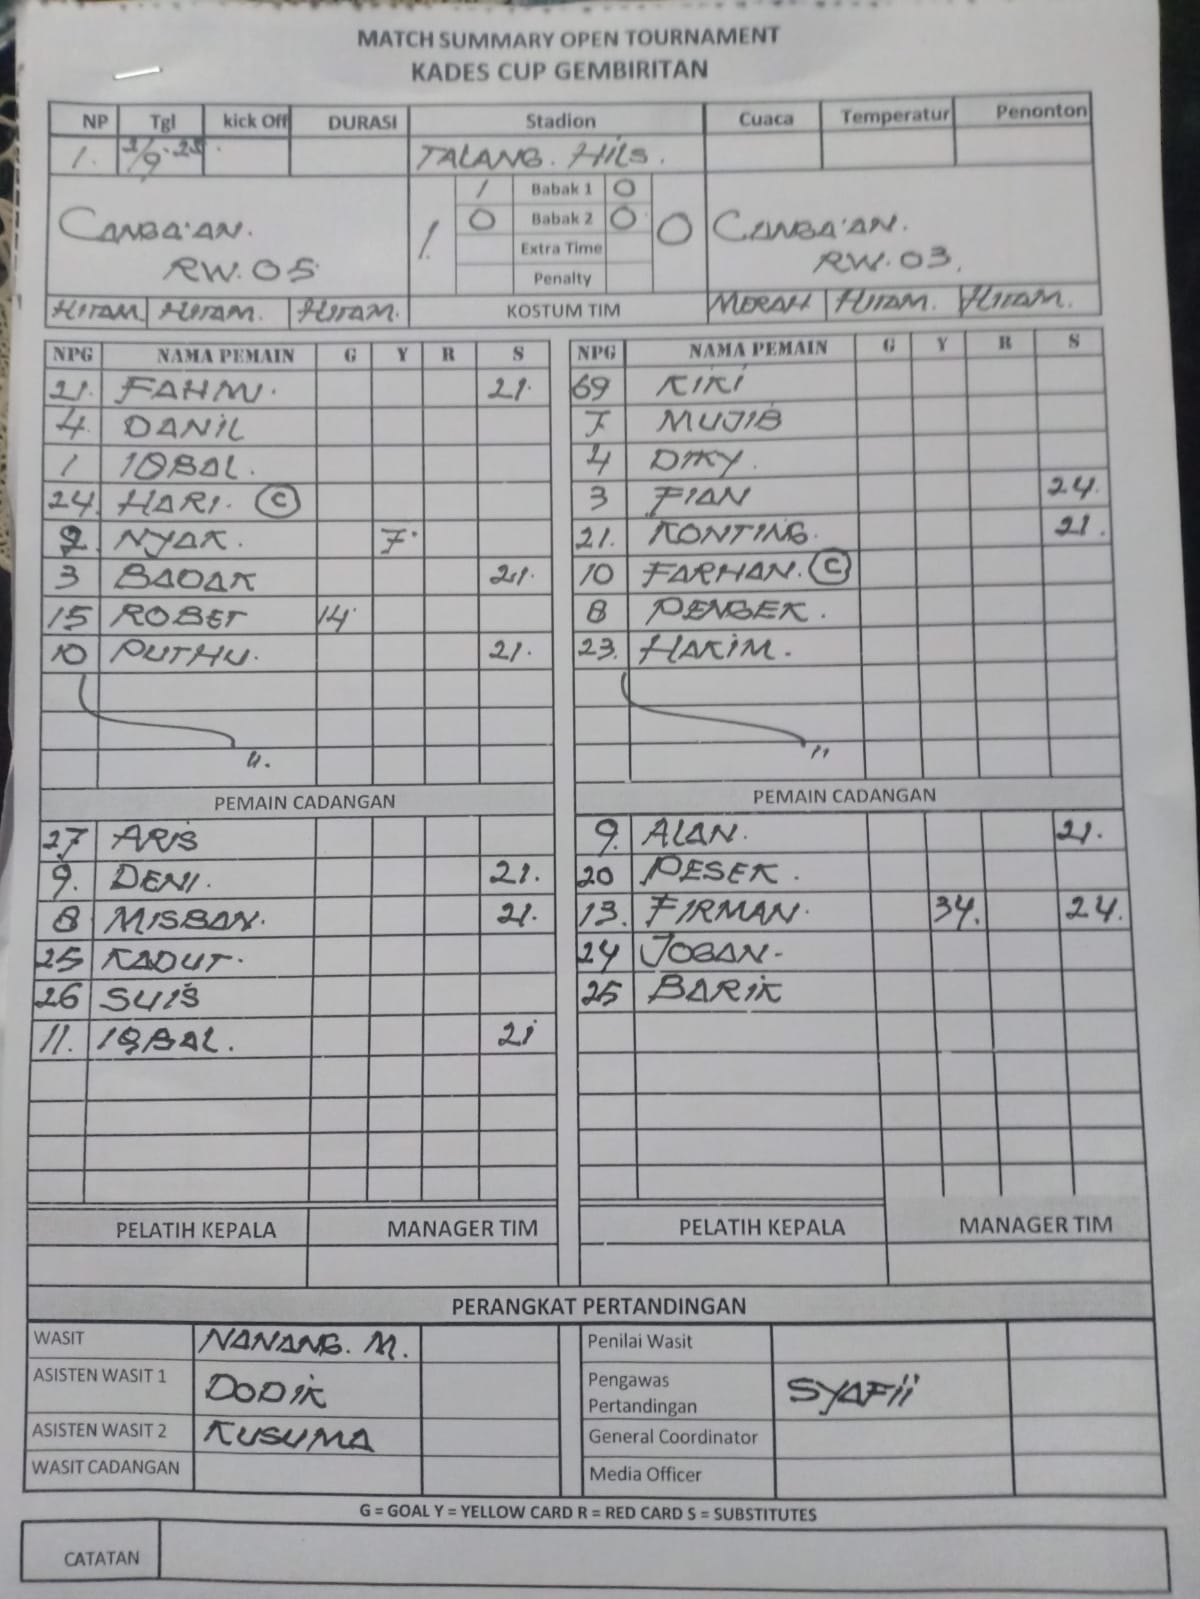 MATCH SUMMARY OPEN TOURNAMENT
KADES CUP GEMBIRITAN
NP Tgl kick Off DURASI Stadion Cuaca Temperatur Penonton
1. /9-25 TALANG. HILS.
CANGA'AN. RW. 05 1. 0 CANGA'AN. RW. 03.
1 Babak 1 0
0 Babak 2 0
Extra Time
Penalty
HITAM HITAM. HITAM. KOSTUM TIM MERAH HITAM. HITAM.
NPG NAMA PEMAIN G Y R S NPG NAMA PEMAIN G Y R S
21. FAHMI. 21. 69 KIKI
4. DANIL 7 MUJIB
1 IQBAL. 4 DIKY.
24. HARI. C 3 FIAN 24.
2. NYAK. 7. 21. KONTING. 21.
3 BADAK 21. 10 FARHAN. C
15 ROBET 14 8 PENGEK.
10 PUTHU. 21. 23. HAKIM.
PEMAIN CADANGAN PEMAIN CADANGAN
27 ARIS 9. ALAN. 21.
9. DENI. 21. 20 PESEK.
8 MISBAN. 21. 13. FIRMAN. 34. 24.
25 KADUT. 24 JOGAN-
26 SUIS 25 BARIK
11. IQBAL. 21
PELATIH KEPALA MANAGER TIM PELATIH KEPALA MANAGER TIM
PERANGKAT PERTANDINGAN
WASIT NANANG. M. Penilai Wasit
ASISTEN WASIT 1 DODIK Pengawas Pertandingan SYAFII
ASISTEN WASIT 2 KUSUMA General Coordinator
WASIT CADANGAN Media Officer
G = GOAL Y = YELLOW CARD R = RED CARD S = SUBSTITUTES
CATATAN